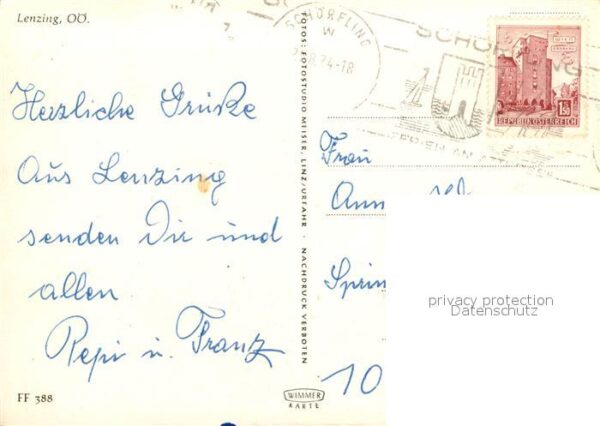 Lenzing, OÖ.
Herzliche Grüße
Aus Lenzing
senden Dir und
allen
Pepi u. Franz
FF 388
FOTOS: FOTOSTUDIO MEISER, LINZ/URFAHR · NACHDRUCK VERBOTEN
WIMMER
KARTE
SCHÖRFLING
W
8.74-18
SCHÖRFLING
FERIEN AM
1.50
REPUBLIK ÖSTERREICH
Frau
Ann
Sprin
10
privacy protection
Datenschutz